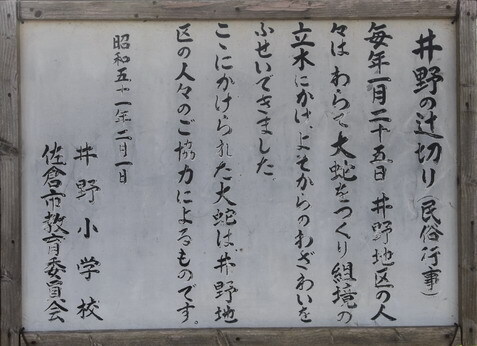 井野の辻切り(民俗行事)
毎年一月二十五日 井野地区の人
々はわらで大蛇をつくり組境の
立木にかけ、よそからのわざわいを
ふせいできました。
ここにかけられた大蛇は井野地
区の人々のご協力によるものです。
昭和五十一年二月一日
井野小学校
佐倉市教育委員会